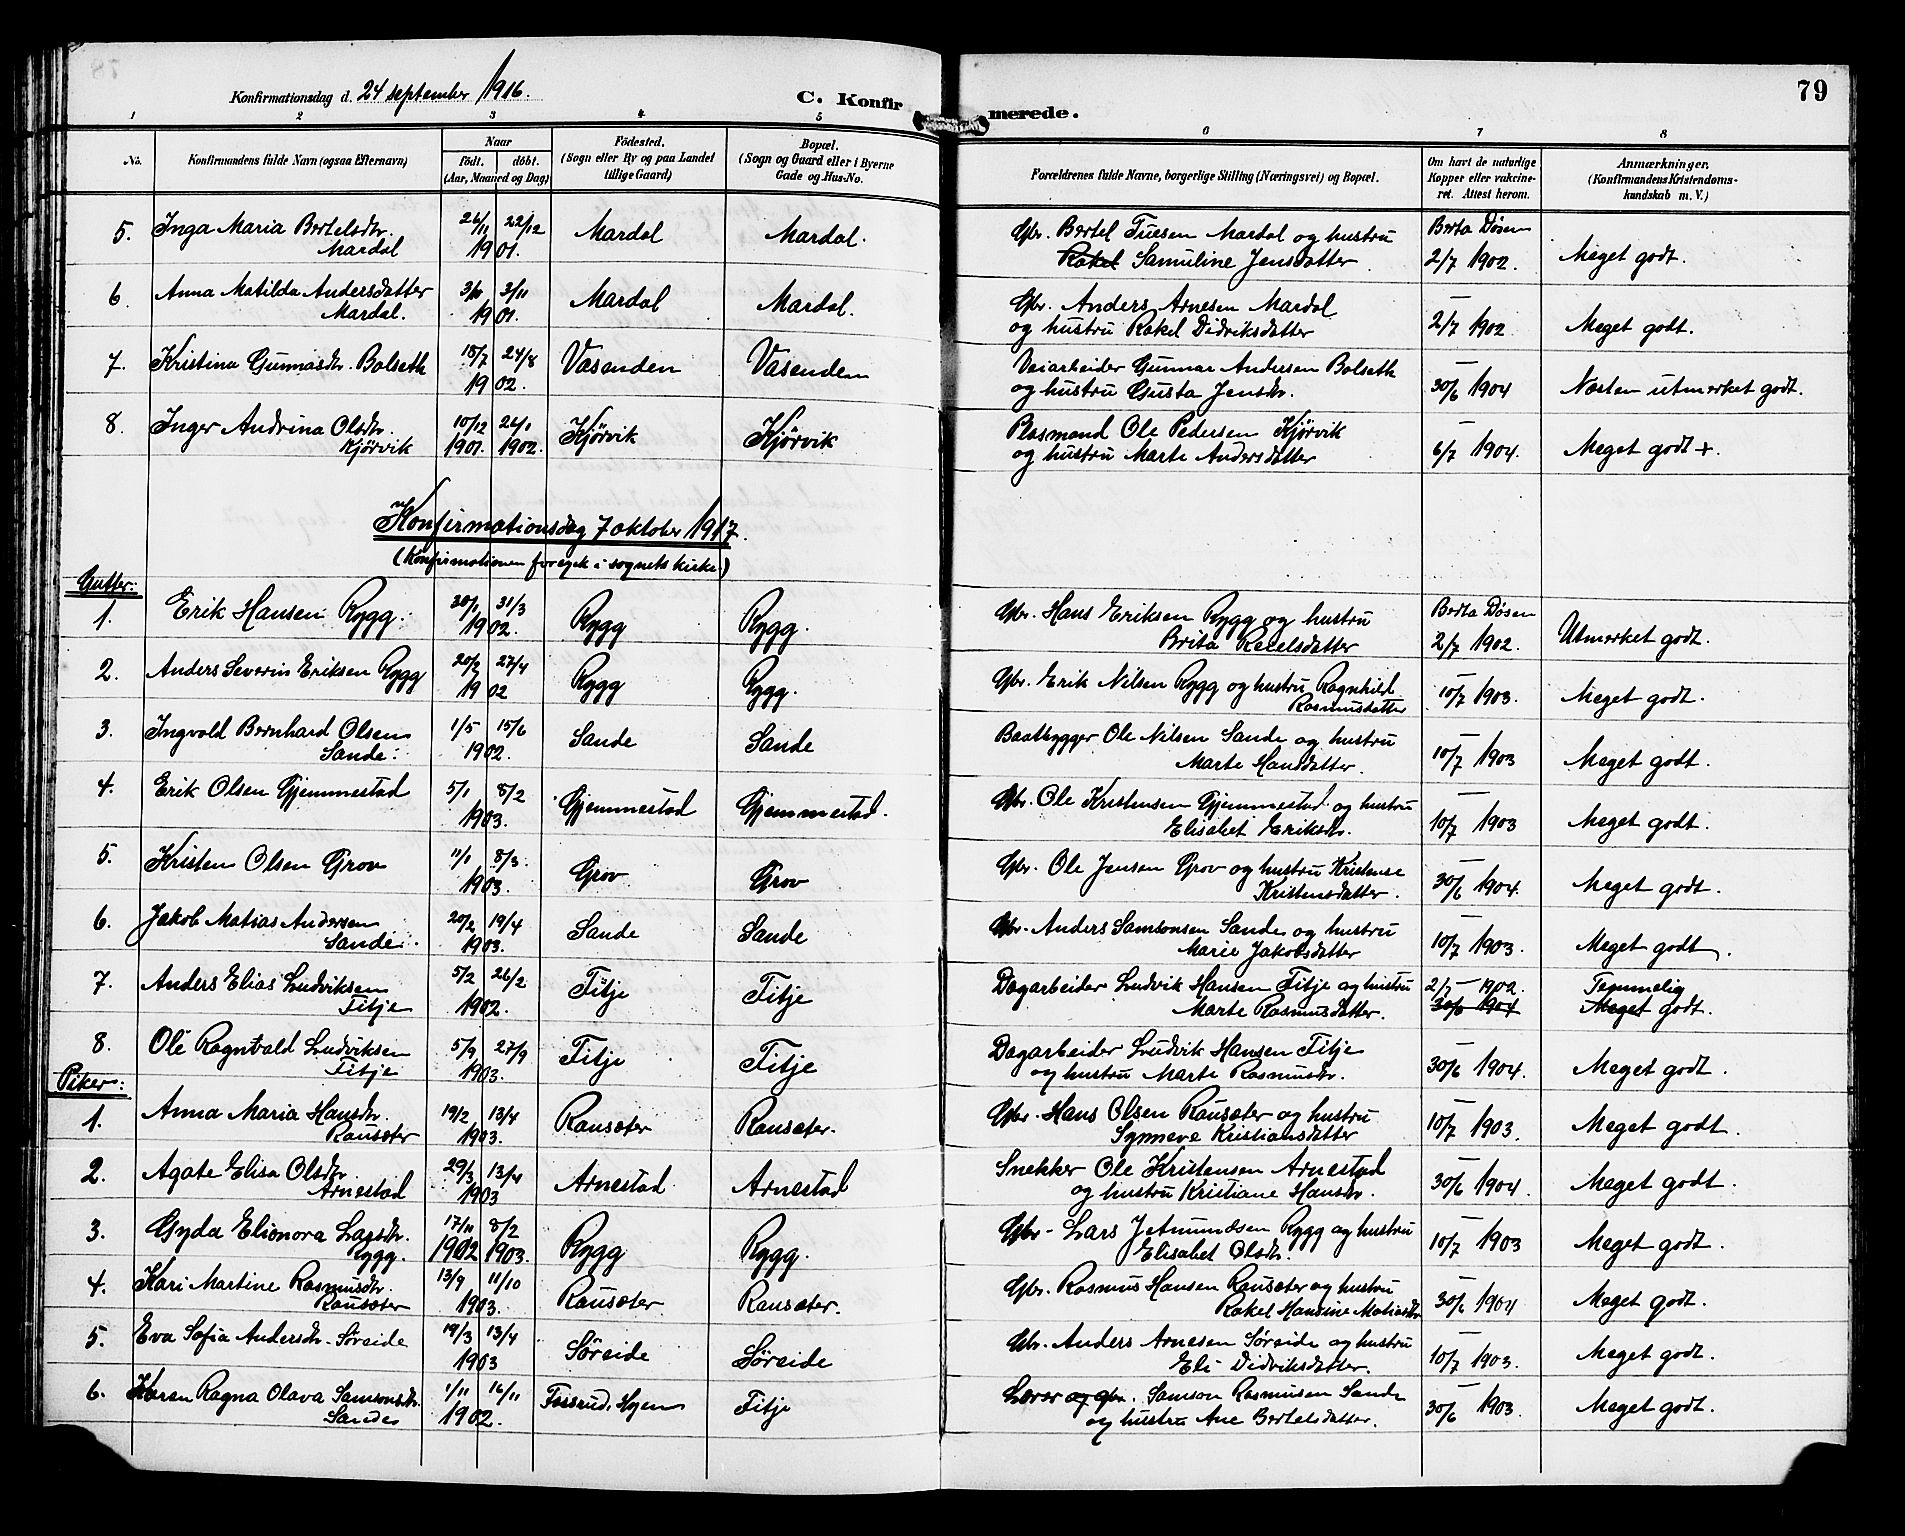 79
Konfirmationsdag d. 24 september 1916.
C. Konfirmerede.
1 2 3 4 5 6 7 8
No. Konfirmandens fulde Navn (ogsaa Efternavn) Naar födt. döbt. (Aar, Maaned og Dag) Födested. (Sogn eller By og paa Landet tillige Gaard) Bopæl. (Sogn og Gaard eller i Byerne Gade og Hus-No. Forældrenes fulde Navne, borgerlige Stilling (Næringsvei) og Bopæl. Om havt de naturlige Kopper eller vakcineret. Attest herom. Anmærkninger. (Konfirmandens Kristendomskundskab m. V.)
5. Inga Maria Bertelsdtr. 26/11 22/12 Mardal Mardal. Gbr. Bertel Tuesen Mardal og hustru Berta Døsen
Mardal 1901. Rakel Samuline Jensdatter 2/7 1902. Meget godt.
6. Anna Matilda Andersdatter 3/10 3/11 Mardal Mardal. Gbr. Anders Arnesen Mardal —
Mardal. 1901. og hustru Rakel Didriksdatter 2/7 1902 Meget godt.
7. Kristina Gunnarsdtr. Bolseth 18/7 24/8 Vasenden Vasenden Veiarbeider Gunnar Andersen Bolseth —
1902 og hustru Gusta Jensdtr. 30/6 1904 Næsten utmerket godt.
8. Inger Andrina Olsdtr. 10/12 26/1 Kjørvik Kjørvik Plasmand Ole Pedersen Kjørvik —
Kjørvik 1901. 1902. og hustru Marte Andersdatter 6/7 1904. Meget godt +.
Konfirmationsdag 7 oktober 1917.
(Konfirmationen foregik i sognets kirke.)
Gutter:
1. Erik Hansen Rygg. 30/1 31/3 Rygg Rygg. Gbr. Hans Eriksen Rygg og hustru Berta Døsen
1902. Brita Reielsdatter 2/7 1902. Utmerket godt.
2. Anders Severin Eriksen Rygg 20/2 27/4 Rygg Rygg. Gbr. Erik Nilsen Rygg og hustru Ragnhild —
1902 Rasmusdatter 10/7 1903. Meget godt.
3. Ingvald Bernhard Olsen 1/5 15/6 Sande Sande Baatbygger Ole Nilsen Sande og hustru —
Sande. 1902. Marte Hansdatter. 10/7 1903 Meget godt.
4. Erik Olsen Gjemmestad 5/1 8/2 Gjemmestad Gjemmestad. Gbr. Ole Kristensen Gjemmestad og hustru —
1903. Elisabet Eriksdtr. 10/7 1903 Meget godt.
5. Kristen Olsen Grov 11/1 8/3. Grov Grov Gbr. Ole Jensen Grov og hustru Kristense —
1903. Kristensdatter. 30/6 1904. Meget godt.
6. Jakob Matias Andersen 20/2 19/4 Sande Sande Gbr. Anders Samsonsen Sande og hustru —
Sande. 1903. Marie Jakobsdatter 10/7 1903. Meget godt.
7. Anders Elias Ludviksen 5/2 26/2 Fitje Fitje Dagarbeider Ludvik Hansen Fitje og hustru 2/7 — 1902. Temmelig
Fitje 1902. Marte Rasmusdatter. 30/6 1904 Meget godt.
8. Ole Ragnvald Ludviksen 5/9 27/9 Fitje Fitje Dagarbeider Ludvik Hansen Fitje —
Fitje 1903. og hustru Marte Rasmusdtr. 30/6 1904. Meget godt.
Piker:
1. Anna Maria Hansdtr. 19/2 13/4 Rausæter Rausæter. Gbr. Hans Olsen Rausæter og hustru —
Rausæter 1903. Synneve Kristiansdatter 10/7 1903. Meget godt.
2. Agate Elisa Olsdtr. 29/3 13/4 Arnestad Arnestad Snekker Ole Kristensen Arnestad —
Arnestad 1903 og hustru Kristiane Hansdtr. 30/6 1904. Meget godt.
3. Gyda Elionora Larsdtr. 17/11 8/2 Rygg Rygg. Gbr. Lars Jetmundsen Rygg og hustru —
Rygg. 1902 1903. Elisabet Olsdtr. 10/7 1903 Meget godt.
4. Kari Martine Rasmusdtr. 13/9 11/10 Rausæter Rausæter. Gbr. Rasmus Hansen Rausæter og hustru —
Rausæter 1903. Rakel Hansine Matiasdtr. 30/6 1904 Meget godt.
5. Eva Sofia Andersdtr. Søreide 19/3 13/4 Søreide Søreide Gbr. Anders Arnesen Søreide og hustru —
1903 Eli Didviksdatter. 10/7 1903. Meget godt.
6. Karen Ragna Olava Samsonsdtr. 1/11 16/11 Hyen Fitje Lærer og gbr. Samson Rasmusen Sande —
Sande 1902. og hustru Ane Bertelsdatter. 30/6 1903. Meget godt.